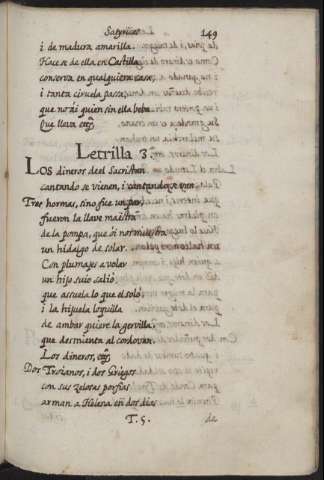 Satyricas 149
i de madura amarilla.
Hacese de ella en Castilla
conserva en qualquiera casa,
i tanta ciruela passa,
que no ai quien sin ella beba.
Que lleva etc.
Letrilla 3.
LOS dineros del Sacristan
cantando se vienen, i cantando se van
Tres hormas, si no fue un par,
fueron la llave maestra
de la pompa, que oi nos muestra
un hidalgo de solar.
Con plumajes a volar
un hijo suio salió,
que assuela lo que el soló;
i la hijuela loquilla
de ambar quiere la gervilla
que desmienta al cordovan.
Los dineros, etc.
Dos Troianos, i dos Griegos
con sus zelosas porfias
arman a Helena en dos dias
T. 5. de